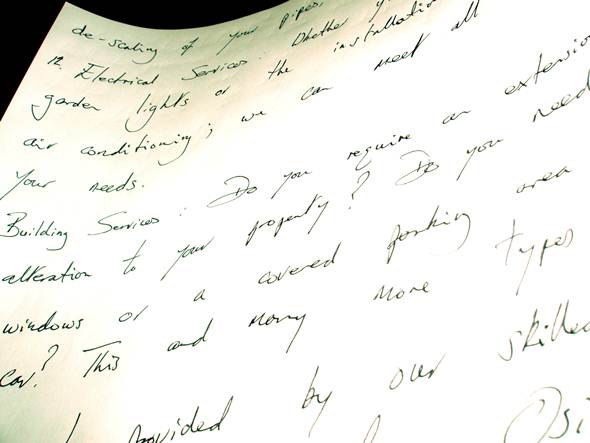 de-scaling of your pipes.
12. Electrical Services: Whether
garden lights or the installation
air conditioning; we can meet all
your needs.
Building Services: Do you require an extension
alteration to your property? Do you need
windows or a covered parking area
car? This and many more types
provided by our skilled